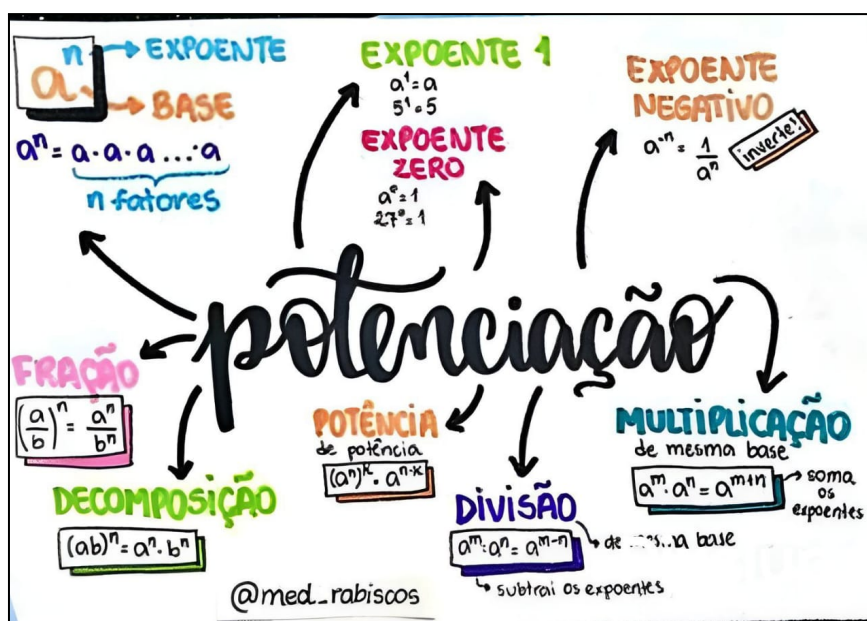 n → EXPOENTE
a → BASE
aⁿ = a · a · a ... · a
n fatores
EXPOENTE 1
a¹ = a
5¹ = 5
EXPOENTE
ZERO
a⁰ = 1
27⁰ = 1
EXPOENTE
NEGATIVO
a⁻ⁿ = 1/aⁿ
inverte!
potenciação
FRAÇÃO
(a/b)ⁿ = aⁿ/bⁿ
DECOMPOSIÇÃO
(ab)ⁿ = aⁿ · bⁿ
POTÊNCIA
de potência
(aⁿ)ᵏ · aⁿ·ᵏ
DIVISÃO
aᵐ : aⁿ = aᵐ⁻ⁿ
de mesma base
subtrai os expoentes
MULTIPLICAÇÃO
de mesma base
aᵐ · aⁿ = aᵐ⁺ⁿ
soma
os
expoentes
@med_rabiscos